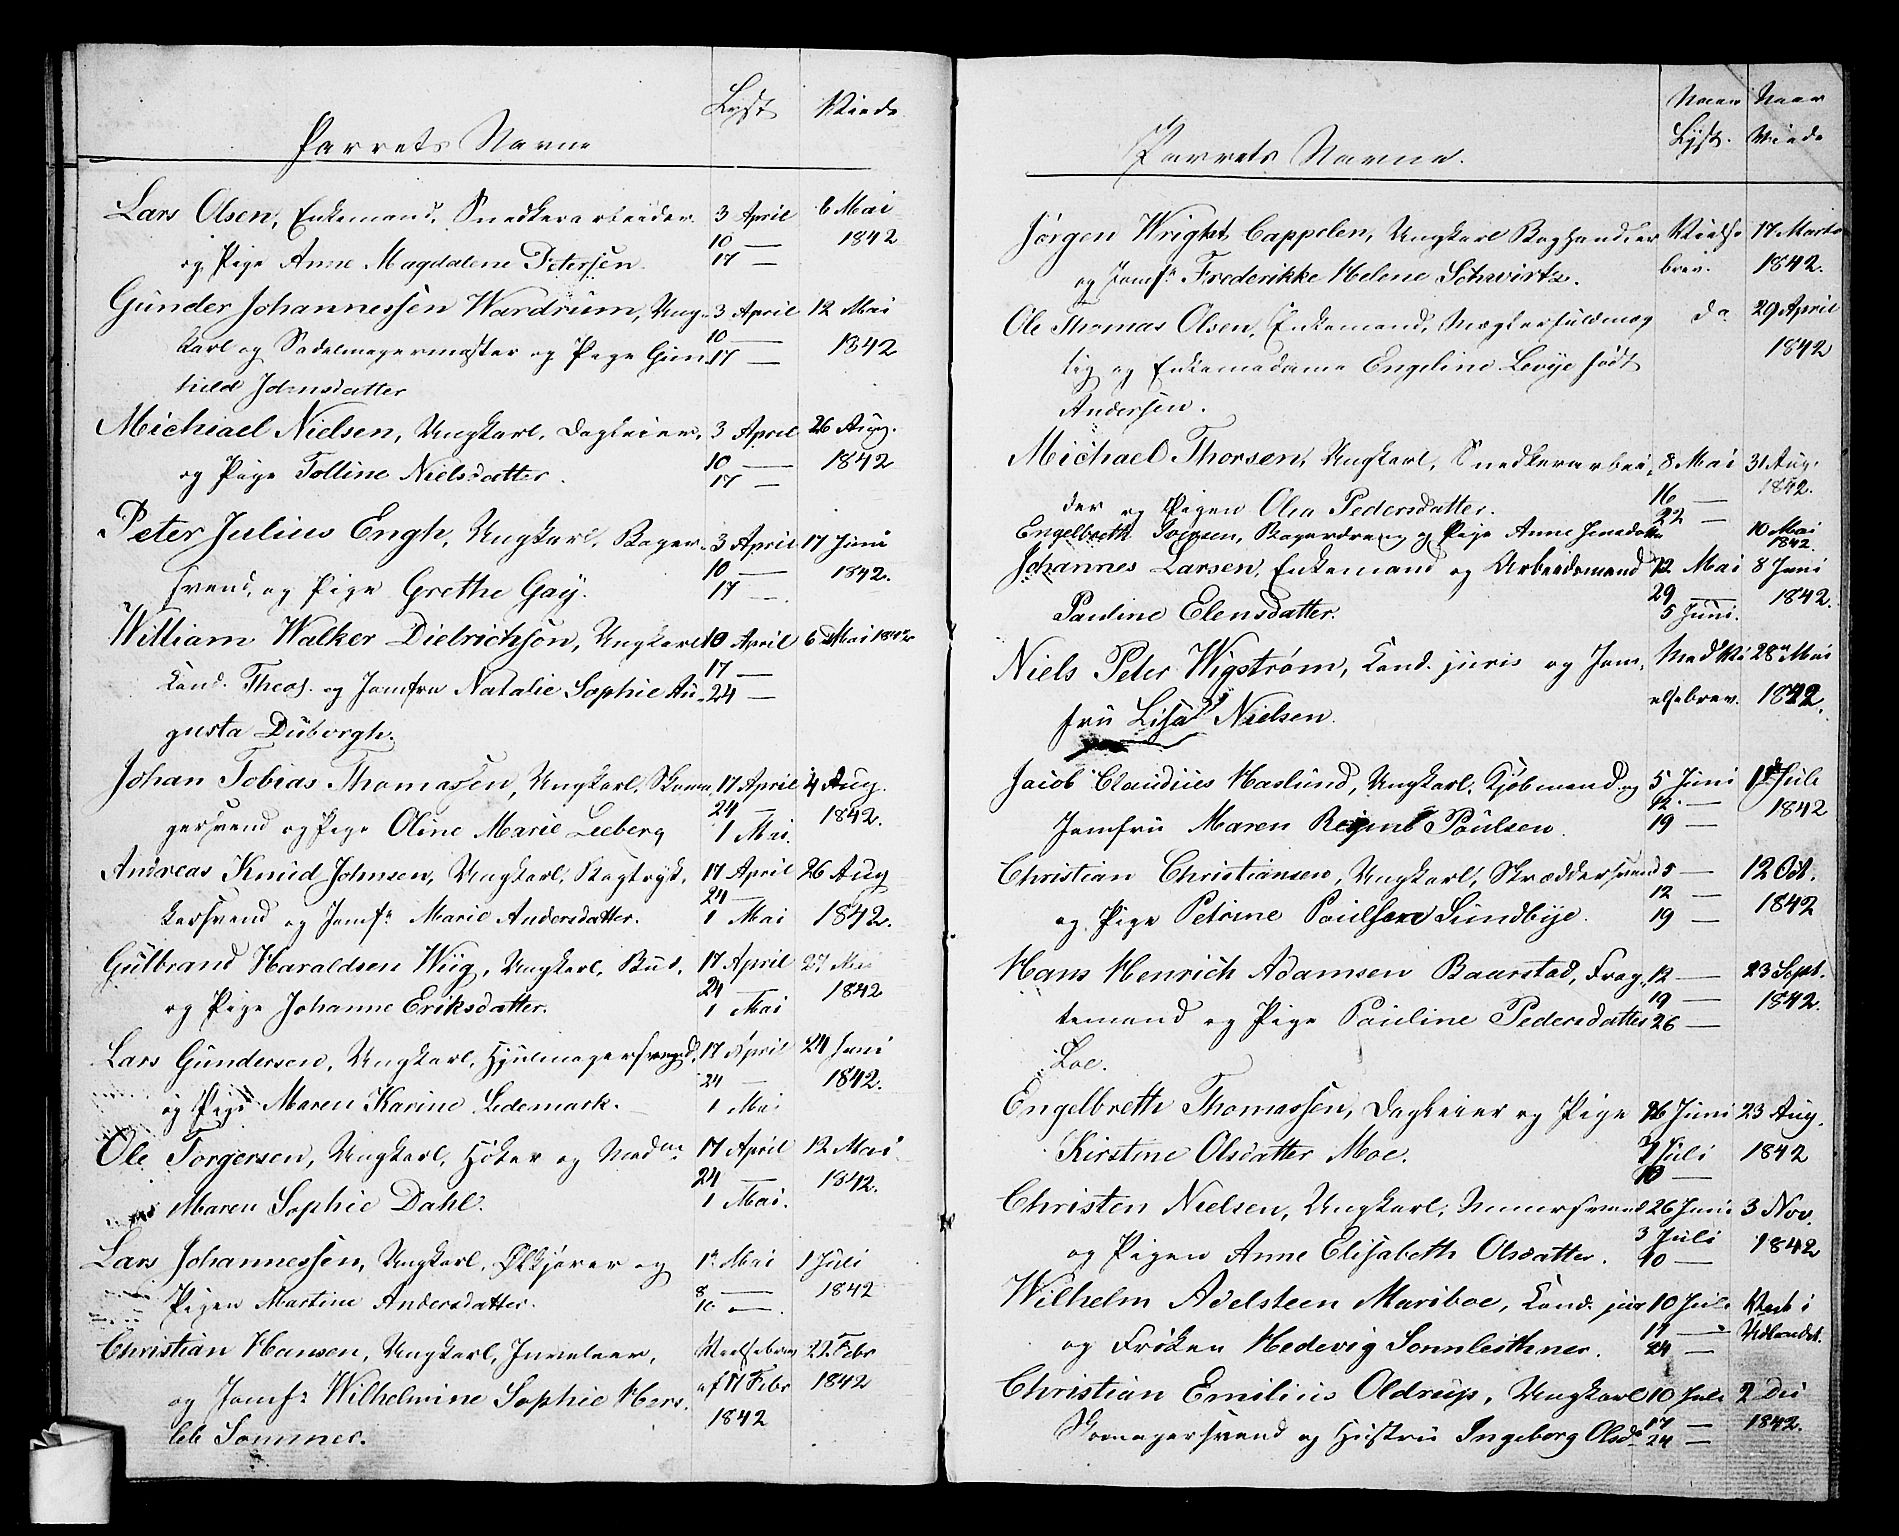 Parrets Navne Lyst Viede
Lars Olsen, Enkemand, Snedkerarbeider 3 April 6 Mai
og Pige Anne Magdalene Petersen. 10 — 1842
17 —
Gunder Johannessen Wardrum, Ung- 3 April 12 Mai
karl og Sadelmagermester og Pige Gun- 10 — 1842
hild Johnsdatter 17 —
Michael Nielsen, Ungkarl, Dagleier, 3 April 26 Aug.
og Pige Tolline Nielsdatter. 10 — 1842
17 —
Peter Julius Engh, Ungkarl, Bager- 3 April 17 Juni
svend, og Pige Grethe Gay. 10 — 1842.
17 —
William Walker Dietrichson, Ungkarl 10 April 6 Mai 1842
Cand. Theol. og Jomfru Natalie Sophie Au- 17 —
gusta Duborgh. 24 —
Johan Tobias Thomassen, Ungkarl, Skoma- 17 April 4 Aug.
gersvend og Pige Oline Marie Leeberg 24 — 1842.
1 Mai.
Andreas Knud Johnsen, Ungkarl, Bogtryk- 17 April 26 Aug
kersvend og Jomfr Marie Andersdatter. 24 — 1842.
1 Mai
Gulbrand Haraldsen Wiig, Ungkarl, Bud, 17 April 27 Mai
og Pige Johanne Eriksdatter. 24 — 1842
1 Mai
Lars Gundersen, Ungkarl, Hjulmagersvend, 17 April 24 Juni
og Pige Maren Karine Ledemark. 24 — 1842.
1 Mai
Ole Torgersen, Ungkarl, Høker og Mad. 17 April 12 Mai
Maren Sophie Dahl. 24 — 1842.
1 Mai.
Lars Johannessen, Ungkarl, Ølkjører og 1 Mai 1 Juli
Pigen Martine Andersdatter. 8 — 1842
Christian Hansen, Ungkarl, Juveleer, Vielsebrev 22 Febr
og Jomfr Wilhelmine Sophie Hers- af 11 Febr 1842
leb Sommer. 1842
Parrets Navne. Naar Lyst. Naar Viede
Jørgen Wright Cappelen, Ungkarl Boghandler Vielse 17 Marts
og Jomfr Frederikke Helene Schwirtz. brev. 1842.
Ole Thomas Olsen, Enkemand, Mæglerfuldmæg do 29 April
tig og Enkemadame Engeline Levye født 1842
Andersen.
Michael Thorsen, Ungkarl, Snedkerarbei- 8 Mai 31 Aug.
der og Pigen Olea Pedersdatter. 16 — 1842.
22 —
Engelbreth Svensen, Bagerdreng og Pige Anne Jensdatter 10 Mai 1842.
Johannes Larsen, Enkemand og Arbeidsmand 22 Mai 8 Juni
Pauline Elensdatter. 29 — 1842.
5 Juni.
Niels Peter Wigstrøm, Cand. juris og Jom- Med Vi 28 Mai
fru Lisa Nielsen. elsebrev. 1842.
Jacob Claudius Haslund, Ungkarl, Kjøbmand og 5 Juni Juli
Jomfru Maren Regine Poulsen. 12 — 1842
19 —
Christian Christiansen, Ungkarl, Skræddersvend 5 — 12 Oct.
og Pige Petrine Paulsen Sundbye. 12 — 1842
19 —
Hans Henrich Adamsen Baarstad, Frag- 12 — 23 Sept.
temand og Pige Pauline Pedersdatter 19 — 1842.
Loe. 26 —
Engelbreth Thomassen, Dagleier og Pige 26 Juni 23 Aug.
Kirstine Olsdatter Moe. 3 Juli 1842
10 —
Christen Nielsen, Ungkarl, Muursvend 26 Juni 3 Nov.
og Pigen Anne Elisabeth Olsdatter. 3 Juli 1842
10 —
Wilhelm Adelsteen Mariboe, Cand. jur 10 Juli Viet i
og Frøken Hedevig Sonnleithner. 17 — Udlandet.
24 —
Christian Emilius Oldrup, Ungkarl 10 Juli 2 De
Skomagersvend og Hustru Ingeborg Olsdr 17 — 1842.
24 —